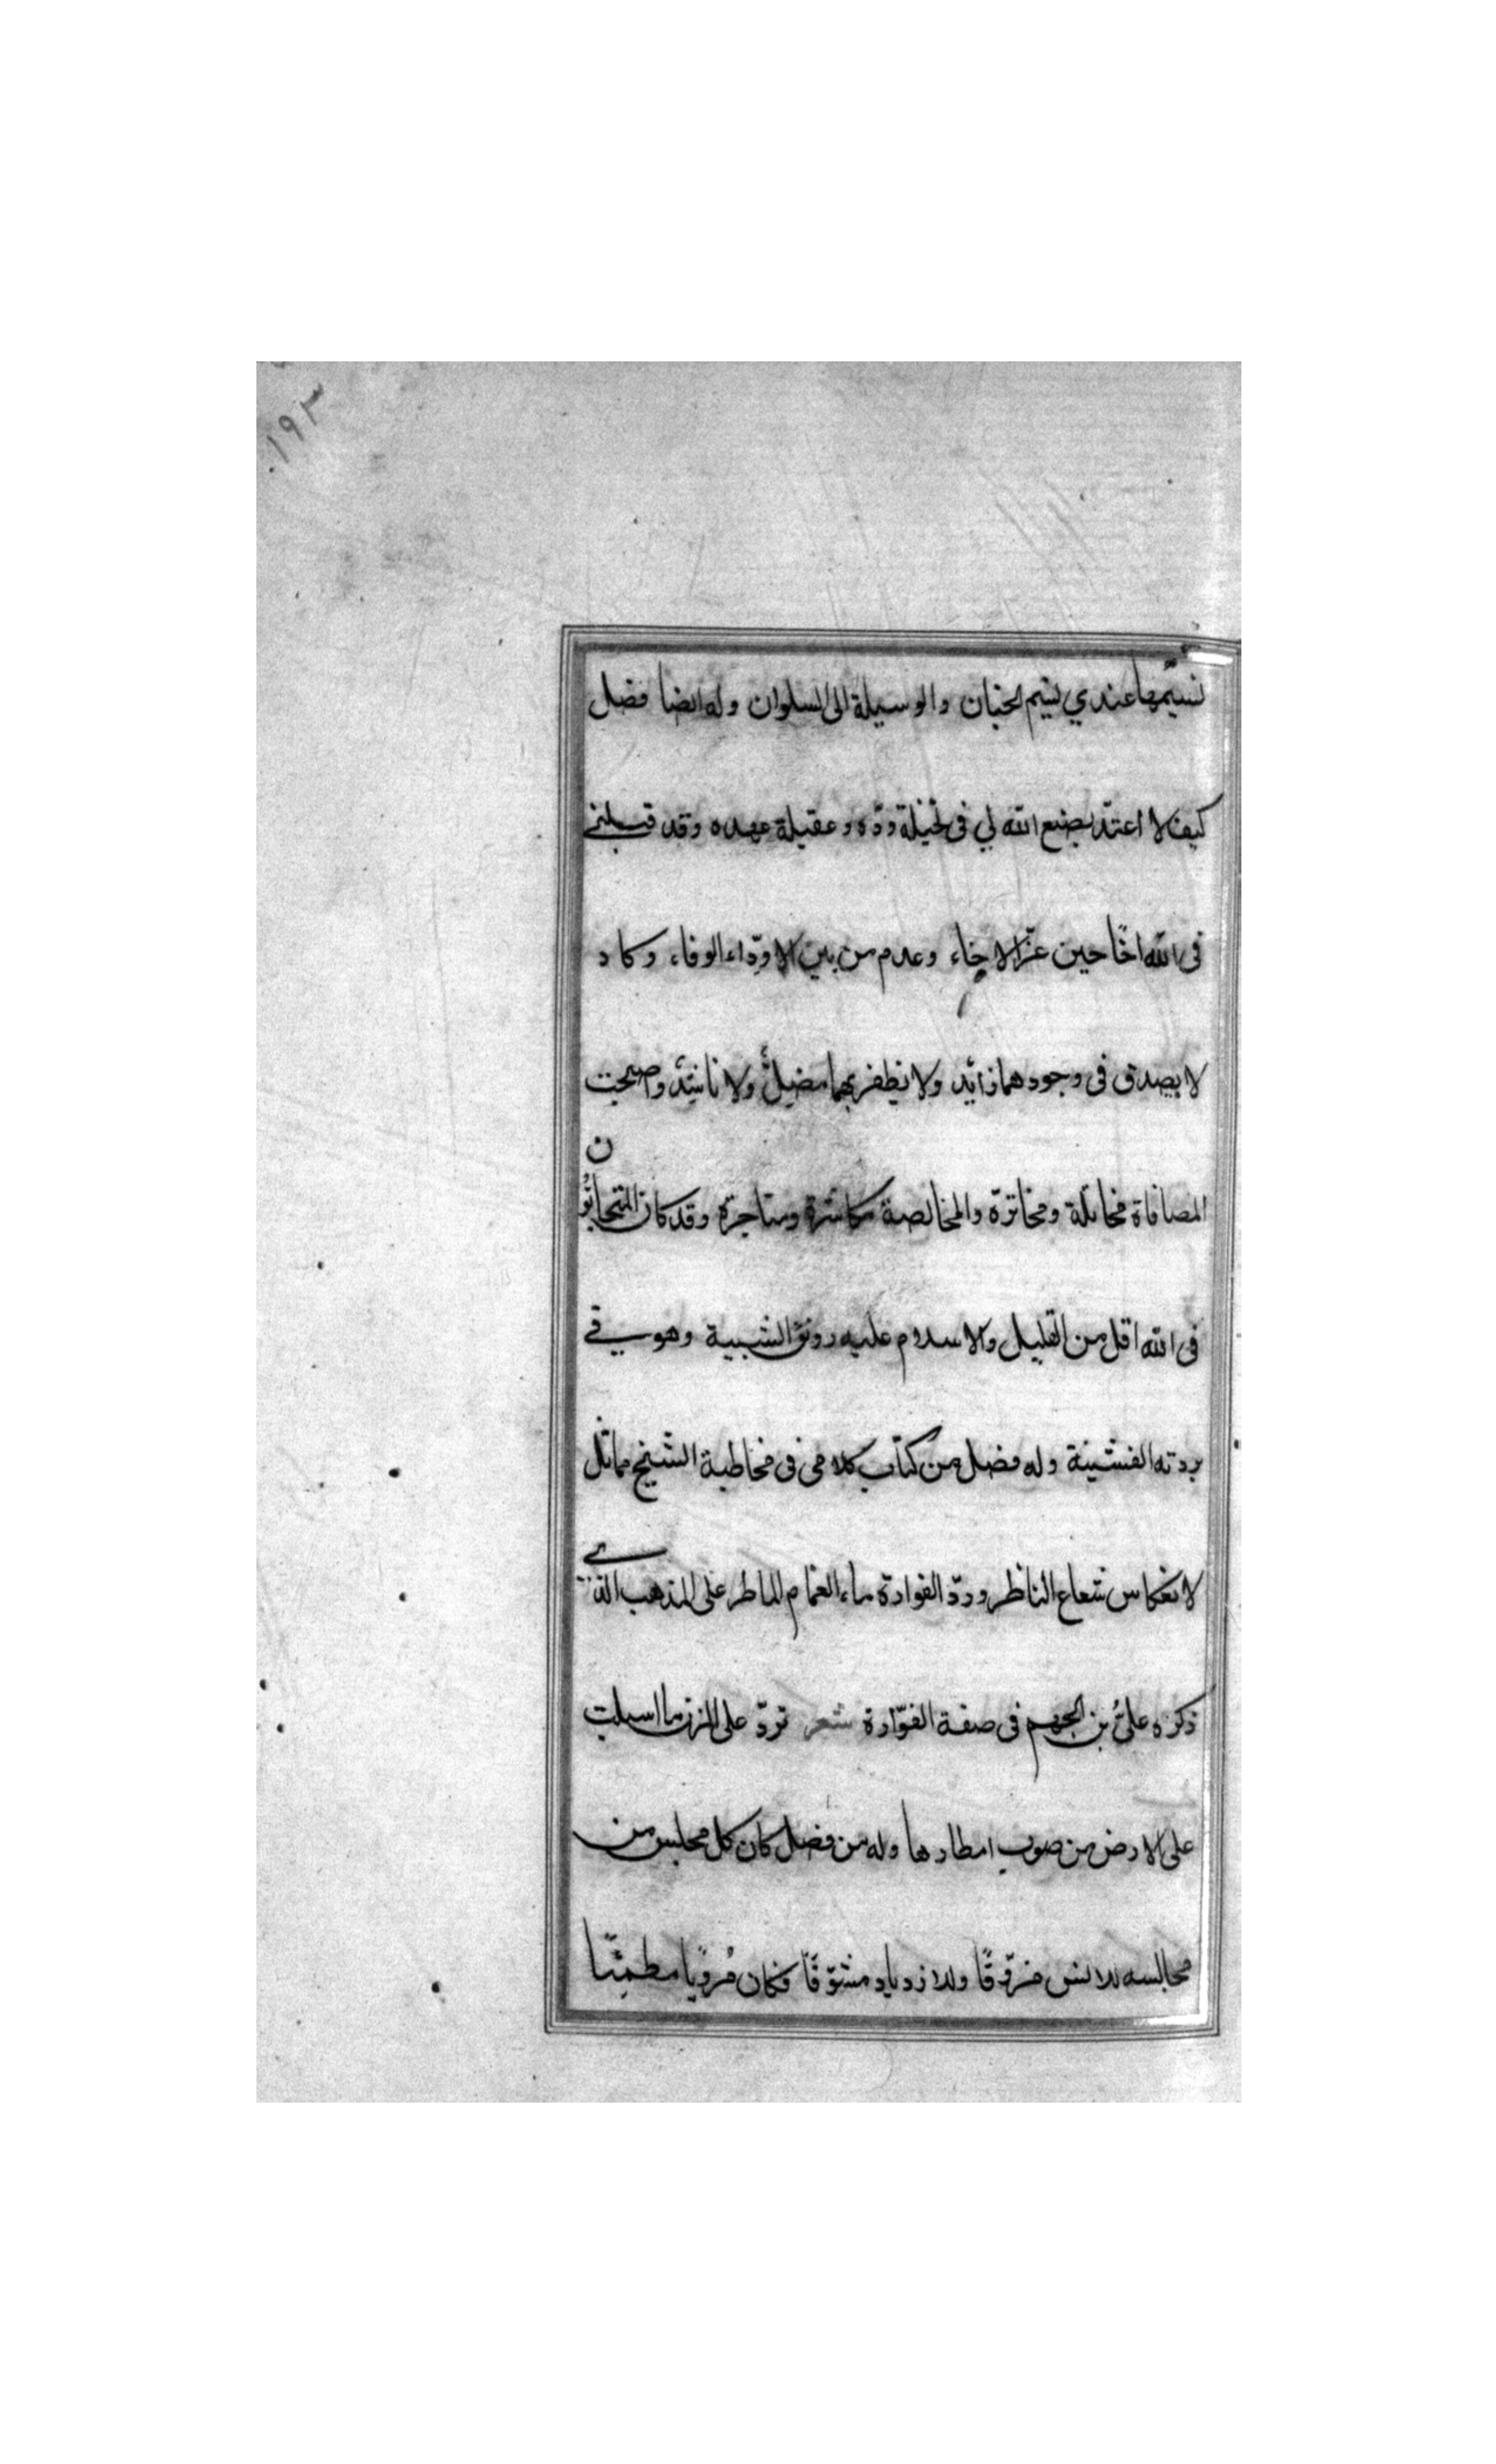 ١٩٣
نسيمها عندي نسيم الجنان والوسيلة الى السلوان وله ايضا فصل
كيف لا اعتدّ بصنع الله لي في نخيلة ودّه وعقيلة عهده وقد قبلني
في الله اخًا حين عزّ الاخاء وعدم من بين الاودّاء الوفاء وكاد
لا يصدق في وجودهما زايد ولا يظفر بهما مضلٌّ ولا ناشد واصبحت
المصافاة مخاتلة ومخاترة والمخالصة مكاشرة ومتاجرة وقد كان المتحابّون
في الله اقل من القليل والاسلام عليه رونق الشبيبة وهو في
بردته القشيبة وله فصل من كتاب كلامي في مخاطبة الشيخ مماثل
لانعكاس شعاع الناظر وردّ الفوارة ماء الغمام الماطر على المذهب الذي
ذكره عليُّ بن الجهم في صفة الفوّارة شعر تردّ على المزن ما اسبلت
على الارض من صوب امطارها وله من فصل كان كل مجلس من
مجالسه للانس مفرّقًا وللازدياد مشوّقًا فكان مُرويًا مطمئنّا